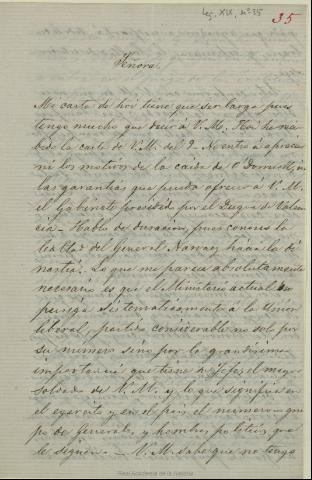 Leg. XIX, nº 35
35
Señora.
Mi carta de hoi tiene que ser larga pues
tengo mucho que decir á V. M. Hoi he reci-
bido la carta de V. M. del 9. No entro á apreciar
ni los motivos de la caida de O'Donnell, ni
las garantias que pueda ofrecer á V. M.
el Gabinete presidido por el Duque de Valen-
cia. Hablo de duracion, pues conozco la
lealtad del General Narvaez hácia la di-
nastia. Lo que me parece absolutamente
necesario es que el Ministerio actual no
persiga sistematicamente á la Union
liberal, partido considerable no solo por
su número sino por la grandisima
importancia que tiene su Jefe, el mejor
Soldado de V. M. y lo que significa en
el egercito y en el pais el numeroso gru-
po de Generales y hombres politicos que
le siguen. — V. M. sabe que no tengo
Real Academia de la Historia